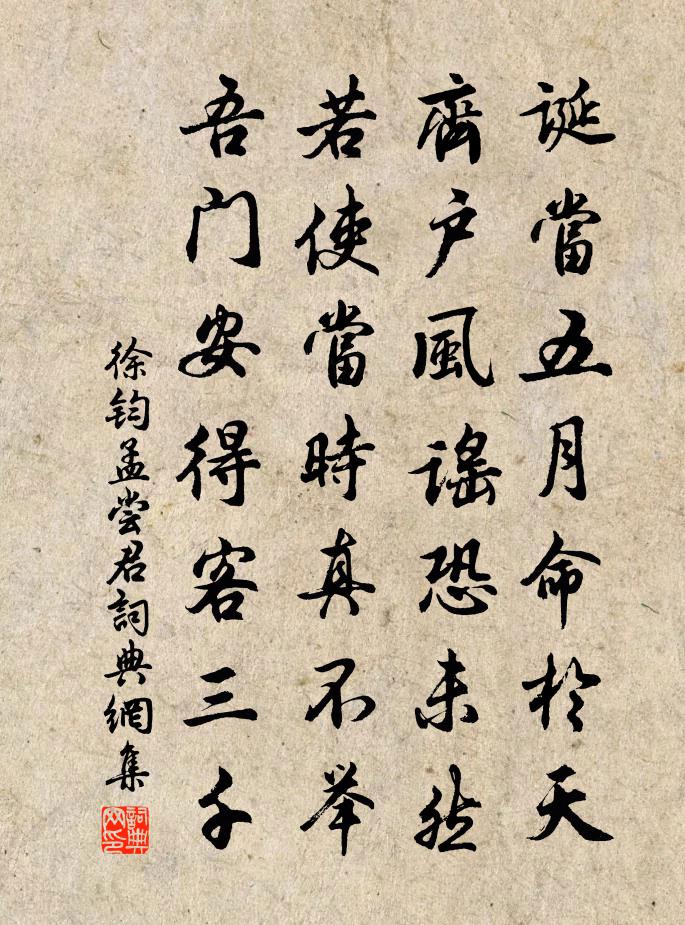 誕當五月命於天
齊户風謠恐未然
若使當時真不举
吾门安得客三千
徐钧孟尝君詞典網集
詞典网印